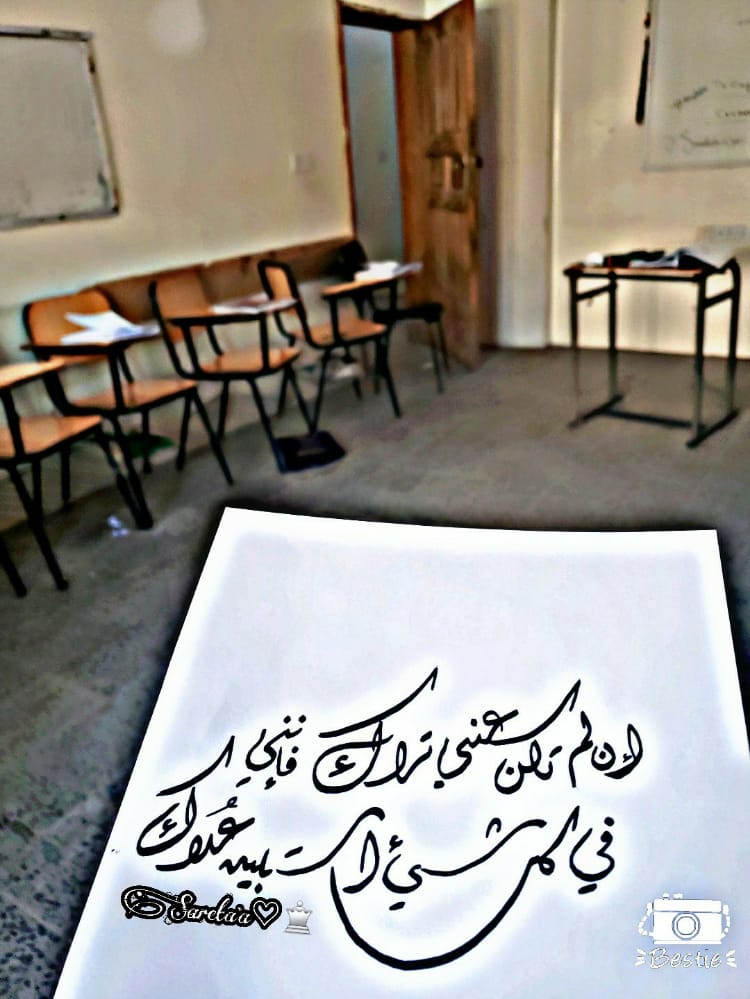 إن لم تكن عيني تراك فإنني
في كل شيئ أستبين عُلاك
Sarela'a
Bestie